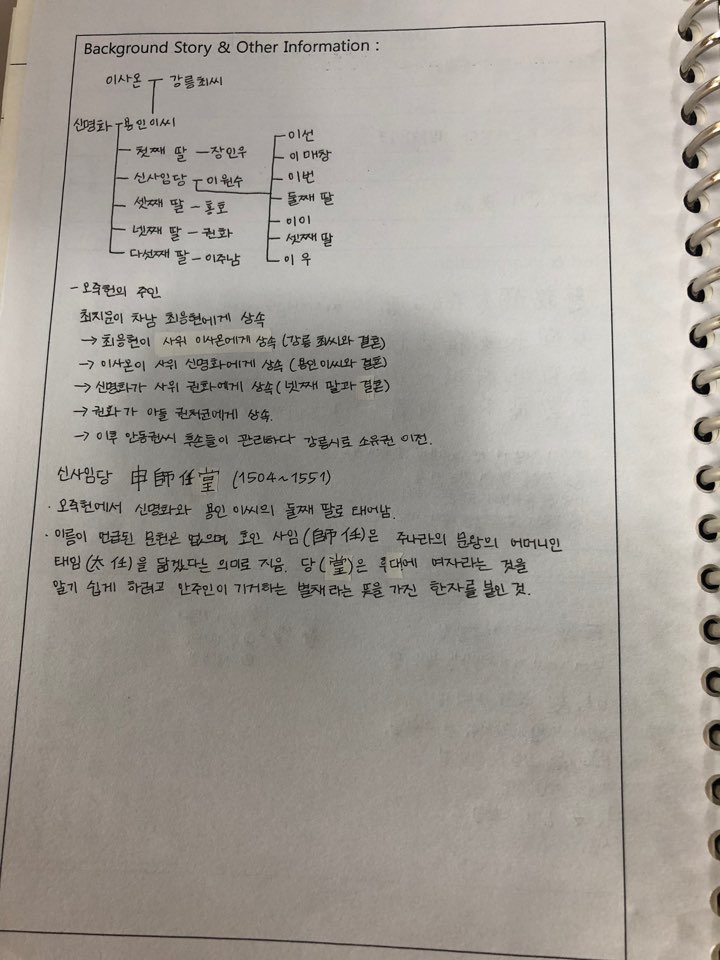 Background Story & Other Information :
이사온 강릉최씨
신명화 용인이씨
첫째 딸 - 장인우
신사임당 이원수
셋째 딸 - 홍호
넷째 딸 - 권화
다섯째 딸 - 이주남
이선
이매창
이번
둘째 딸
이이
셋째 딸
이우
- 오죽헌의 주인
최치운이 차남 최응현에게 상속
→ 최응현이 사위 이사온에게 상속 (강릉 최씨와 결혼)
→ 이사온이 사위 신명화에게 상속 (용인이씨와 결혼)
→ 신명화가 사위 권화에게 상속 (넷째 딸과 결혼)
→ 권화가 아들 권처균에게 상속.
→ 이후 안동권씨 후손들이 관리하다 강릉시로 소유권 이전.
신사임당 申師任堂 (1504~1551)
· 오죽헌에서 신명화와 용인 이씨의 둘째 딸로 태어남.
· 이름이 언급된 문헌은 없으며, 호인 사임(師任)은 주나라의 문왕의 어머니인
태임(太任)을 닮겠다는 의미로 지음. 당(堂)은 후대에 여자라는 것을
알기 쉽게 하려고 안주인이 기거하는 별채라는 뜻을 가진 한자를 붙인 것.